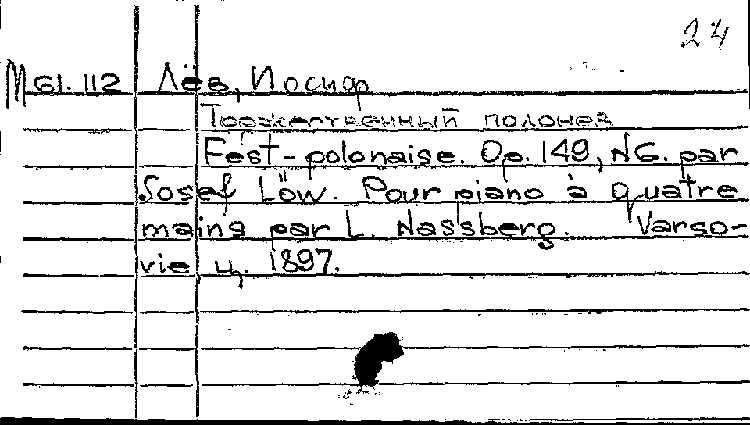 24
М 61.112 Лёв, Иосиф
Торжественный полонез
Fest-polonaise. Op. 149, N6. par
Josef Löw. Pour piano à quatre
mains par L. Nassberg. Varso-
vie, ц. 1897.